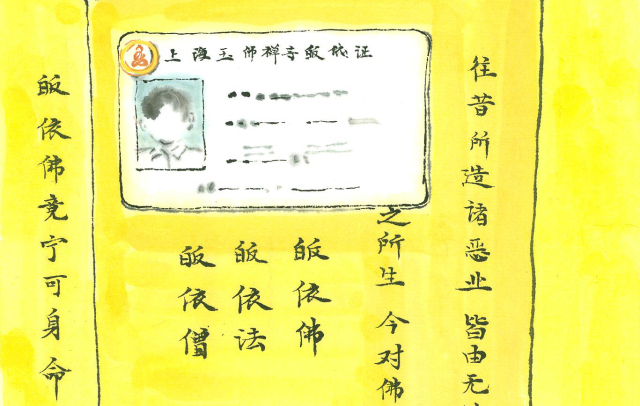 上海玉佛禅寺皈依证
往昔所造诸恶业 皆由无
之所生 今对佛
皈依佛
皈依法
皈依僧
皈依佛竟宁可身命